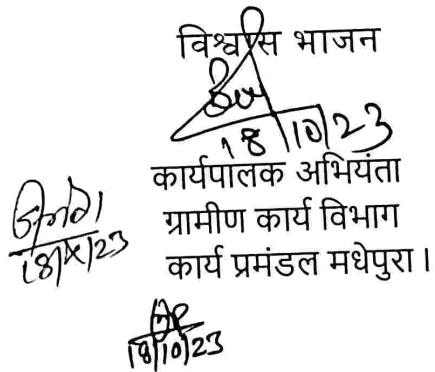 विश्वास भाजन
18/10/23
कार्यपालक अभियंता
ग्रामीण कार्य विभाग
कार्य प्रमंडल मधेपुरा।
18/X/23
18/10/23